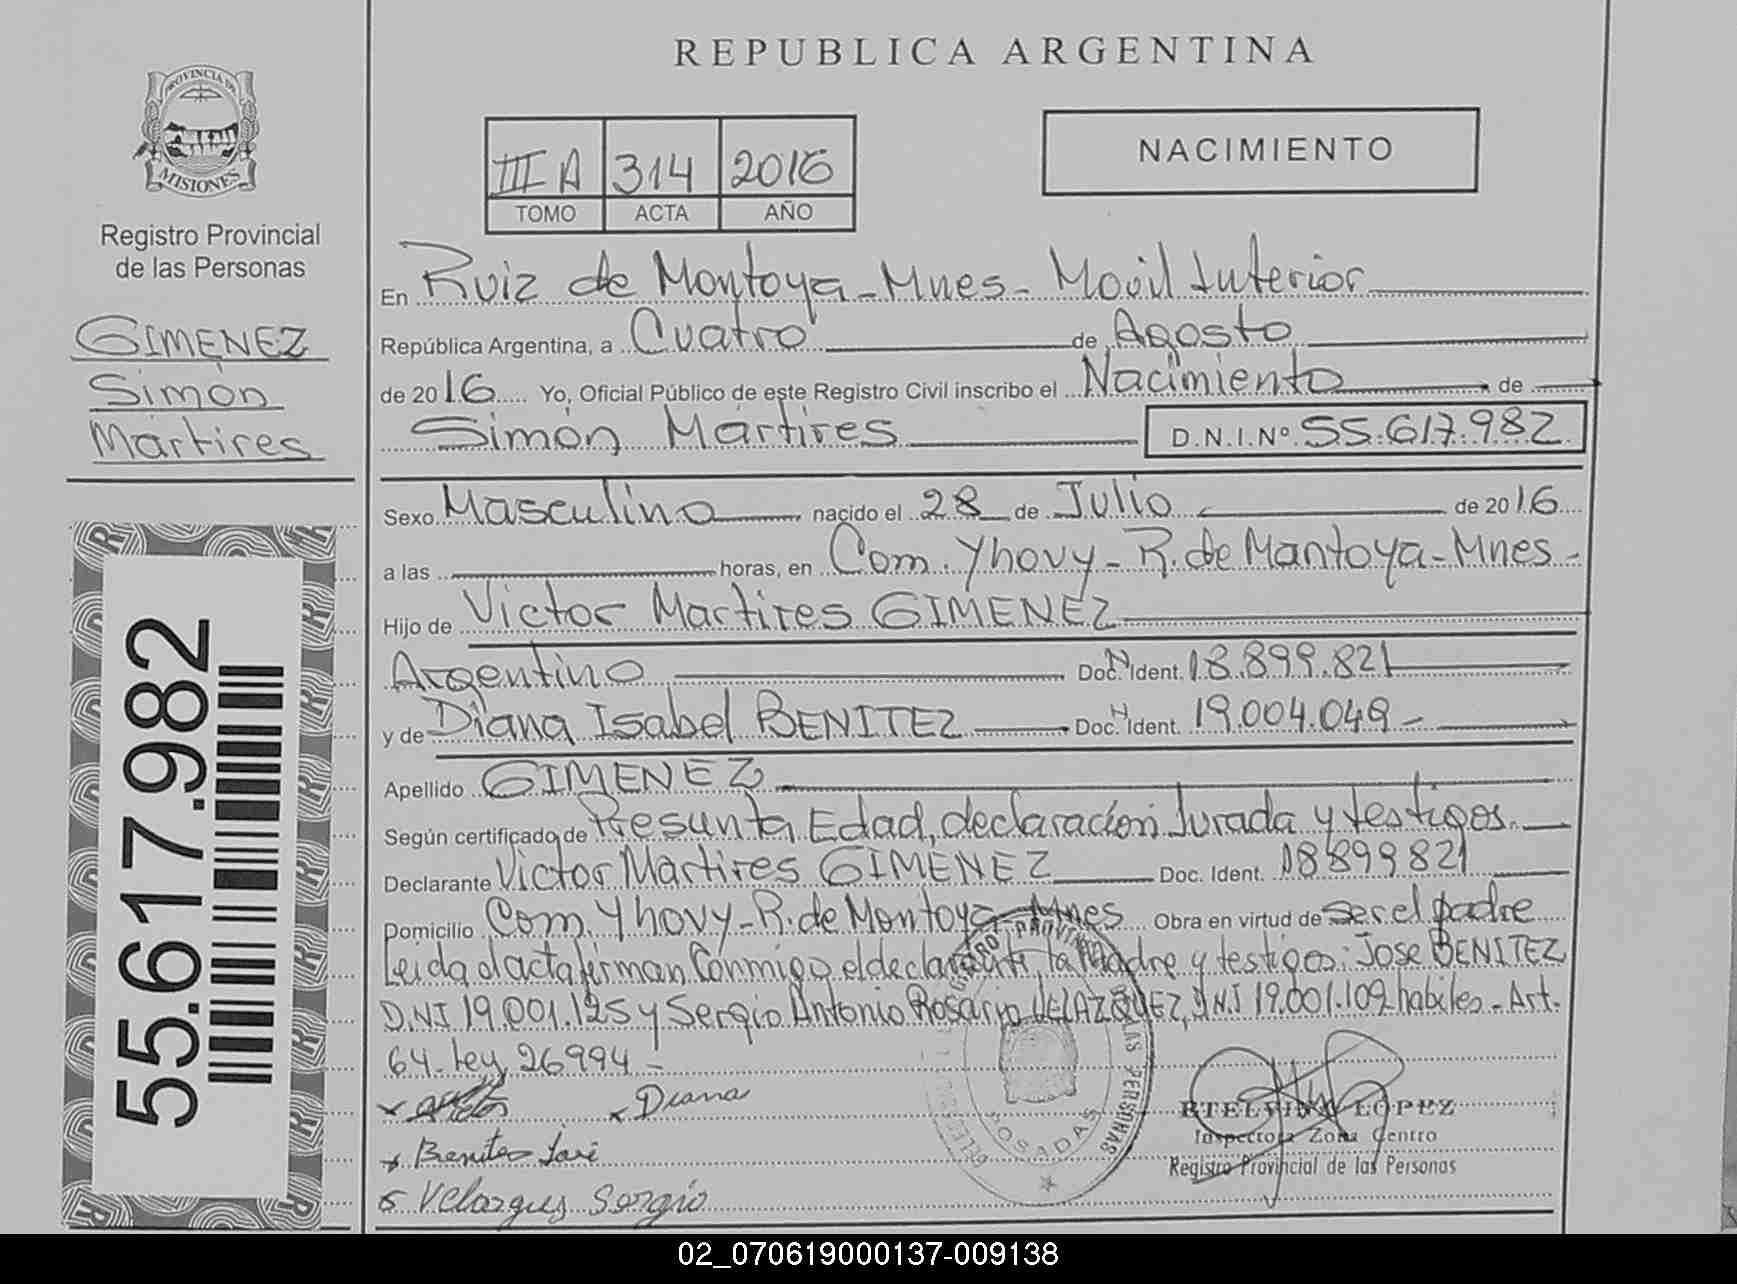 REPUBLICA ARGENTINA
PROVINCIA DE
MISIONES
Registro Provincial
de las Personas
GIMENEZ
Simón
Martires
55.617.982
III A 314 2016
TOMO ACTA AÑO
NACIMIENTO
En Ruiz de Montoya - Mnes - Movil Interior
República Argentina, a Cuatro de Agosto
de 2016 Yo, Oficial Público de este Registro Civil inscribo el Nacimiento de
Simón Martires D.N.I.Nº 55.617.982
Sexo Masculino nacido el 28 de Julio de 2016
a las horas, en Com. Yhovy - R. de Mantoya - Mnes -
Hijo de Victor Martires GIMENEZ
Argentino Doc. N Ident. 18.899.821
y de Diana Isabel BENITEZ Doc. N Ident. 19.004.049 -
Apellido GIMENEZ
Según certificado de Presunta Edad, declaración Jurada y testigos.
Declarante Victor Martires GIMENEZ Doc. Ident. 18899821
Domicilio Com. Yhovy - R. de Montoya - Mnes Obra en virtud de ser el padre
Leida el acta firman Conmigo el declarante, la Madre y testigos: Jose BENITEZ
D.NI 19.001.125 y Sergio Antonio Rosario VELAZQUEZ, DNI 19.001.109 habiles - Art.
64. Ley 26994 -
x x Diana
x Benites José
Velazques Sergio
PERSONAS
POSADAS
ETELVINA LOPEZ
Inspectora Zona Centro
Registro Provincial de las Personas
02_070619000137-009138